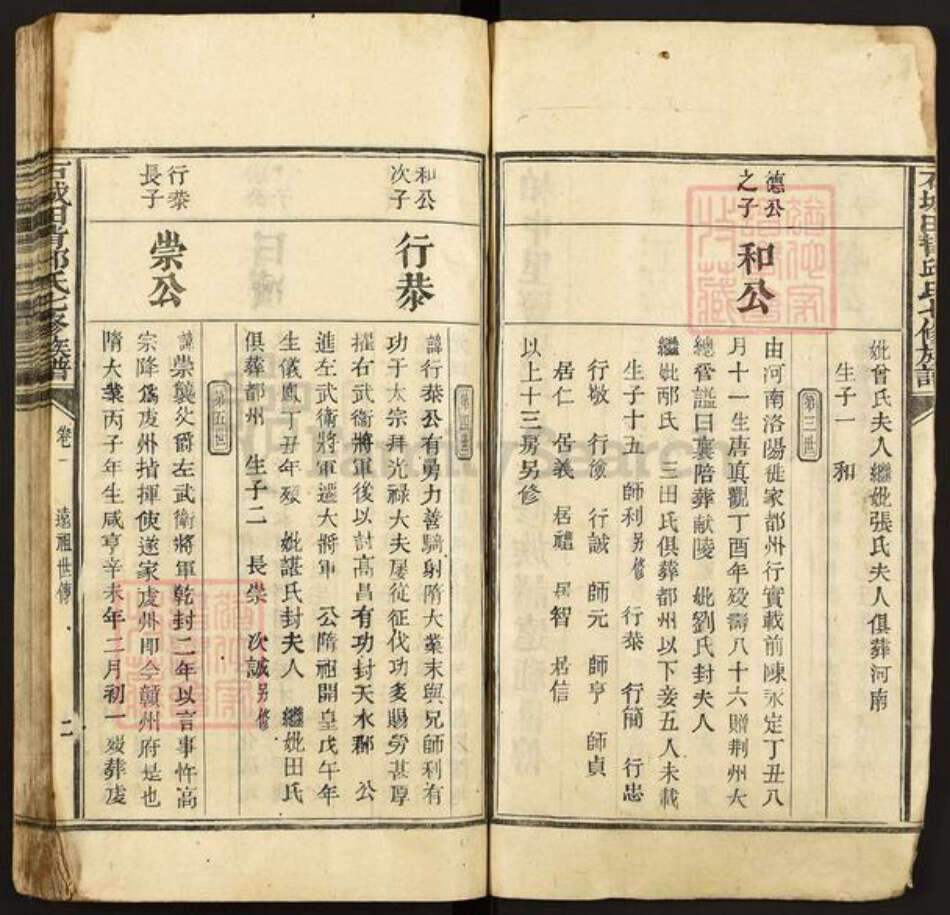 妣曾氏夫人繼妣張氏夫人俱葬河南
生子一 和
第三世
德公
之子
和公
由河南洛陽徙家都州行實載前陳永定丁丑八
月十一生唐眞觀丁酉年歿壽八十六贈荆州大
總管謚曰襄陪葬献陵 妣劉氏封夫人
繼妣邴氏 三田氏俱葬都州以下妾五人未載
生子十五 師利另修 行恭 行簡 行忠
行敬 行儉 行誠 師元 師亨 師貞
居仁 居義 居禮 居智 居信
以上十三房另修
第四世
和公
次子
行恭
諱行恭公有勇力善騎射隋大業末與兄師利有
功于太宗拜光禄大夫屢從征伐功多賜勞甚厚
擢右武衛將軍後以討高昌有功封天水郡 公
進左武衛將軍遷大將軍 公隋祖開皇戊午年
生儀鳳丁丑年歿 妣諶氏封夫人 繼妣田氏
俱葬都州 生子二 長崇 次誠另修
第五世
行恭
長子
崇公
諱崇襲父爵左武衛將軍乾封二年以言事忤高
宗降爲虔州指揮使遂家虔州即今贛州府是也
隋大業丙子年生咸亨辛未年二月初一歿葬虔
邱氏七修族譜
卷一
遠祖世傳
二